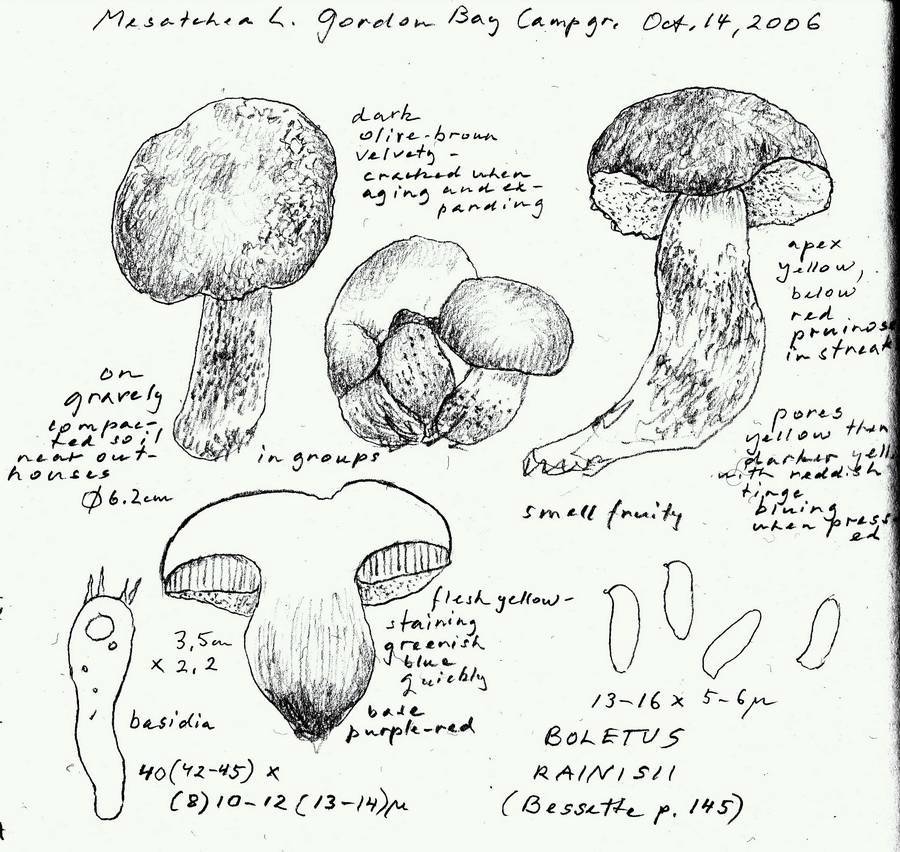 Mesatchea L. Gordon Bay Campgr. Oct. 14, 2006
dark
olive-brown
velvety -
cracked when
aging and ex-
panding
apex
yellow,
below
red
pruinose
in streak
on
gravely
compac-
ted soil
near out-
houses
Ø 6.2cm
in groups
pores
yellow then
darker yell
with reddish
tinge
bluing
when press
ed
smell fruity
flesh yellow-
staining
greenish
blue
quickly
base
purple-red
3,5cm
x 2,2
basidia
40(42-45) x
(8)10-12(13-14)µ
13-16 x 5-6µ
BOLETUS
RAINISII
(Bessette p. 145)